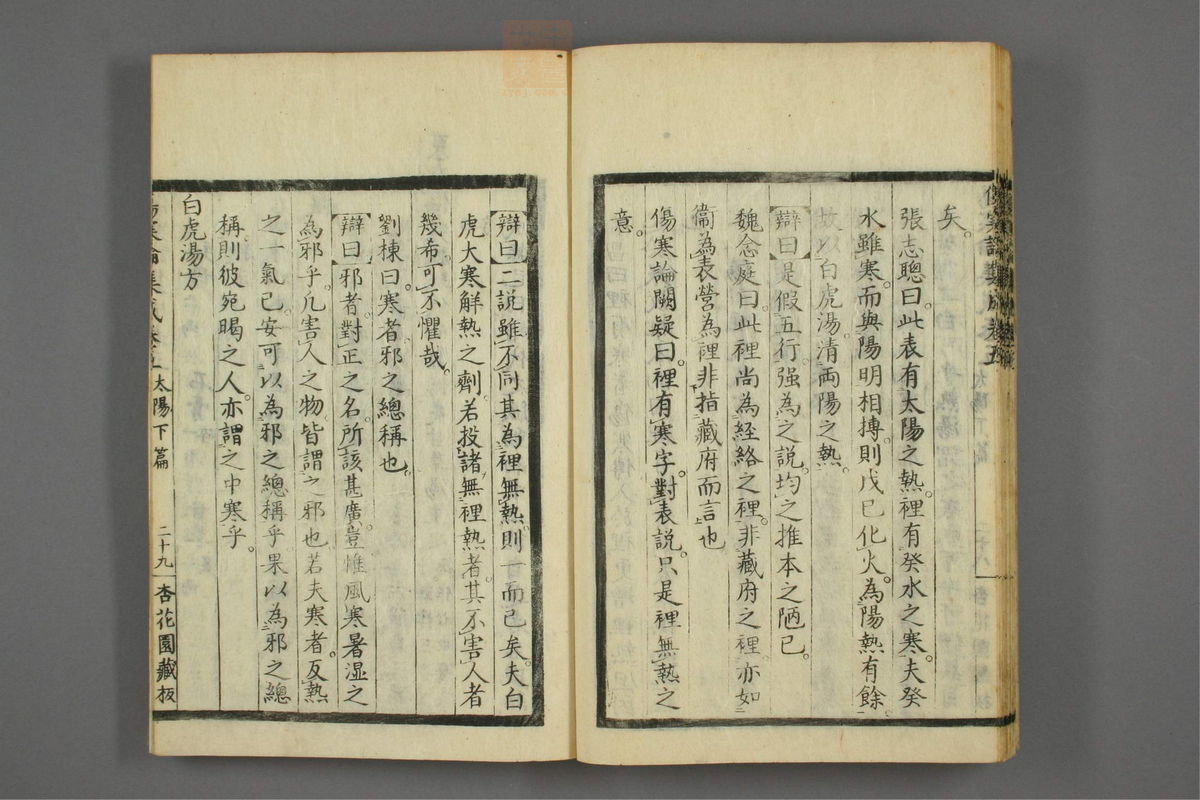 傷寒論集成卷五
矣。
張志聰曰。此表有太陽之熱。裡有癸水之寒。夫癸
水雖寒。而與陽明相搏。則戊已化火。為陽熱有餘
故以白虎湯。清両陽之熱。
辯曰是假五行。强為之説。均之推本之陋已。
魏念庭曰。此裡尚為経絡之裡。非藏府之裡。亦如
衞為表。營為裡。非指藏府而言也
傷寒論闕疑曰。裡有寒字。對表説。只是裡無熱之
意。
辯曰二説雖不同。其為裡無熱。則一而已矣。夫白
虎大寒解熱之劑。若投諸無裡熱者。其不害人者
幾希。可不懼哉。
劉棟曰。寒者。邪之總稱也。
辯曰邪者。對正之名。所該甚廣。豈惟風寒暑湿之
為邪乎。凡害人之物。皆謂之邪也若夫寒者。反熱
之一氣已。安可以為邪之總稱乎果以為邪之總
稱。則彼宛暍之人。亦謂之中寒乎。
白虎湯方
傷寒論集成卷五 太陽下篇 二十九 杏花園藏板